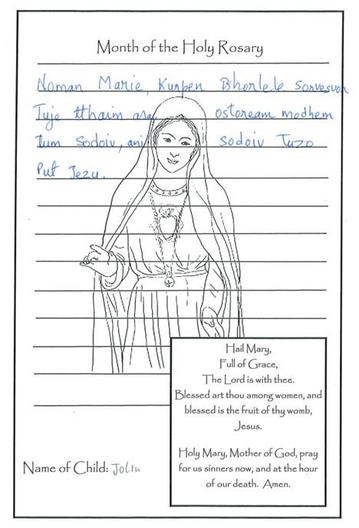 Month of the Holy Rosary
Noman Marie, Kurpen Bhorlele Sorvespor
Tuje tthaim asa ostoream modhem
Tum Sodoiv, ani sodoiv Tuzo
Put Jezu.
Hail Mary,
Full of Grace,
The Lord is with thee.
Blessed art thou among women, and
blessed is the fruit of thy womb,
Jesus.
Holy Mary, Mother of God, pray
for us sinners now, and at the hour
of our death. Amen.
Name of Child: Jolin